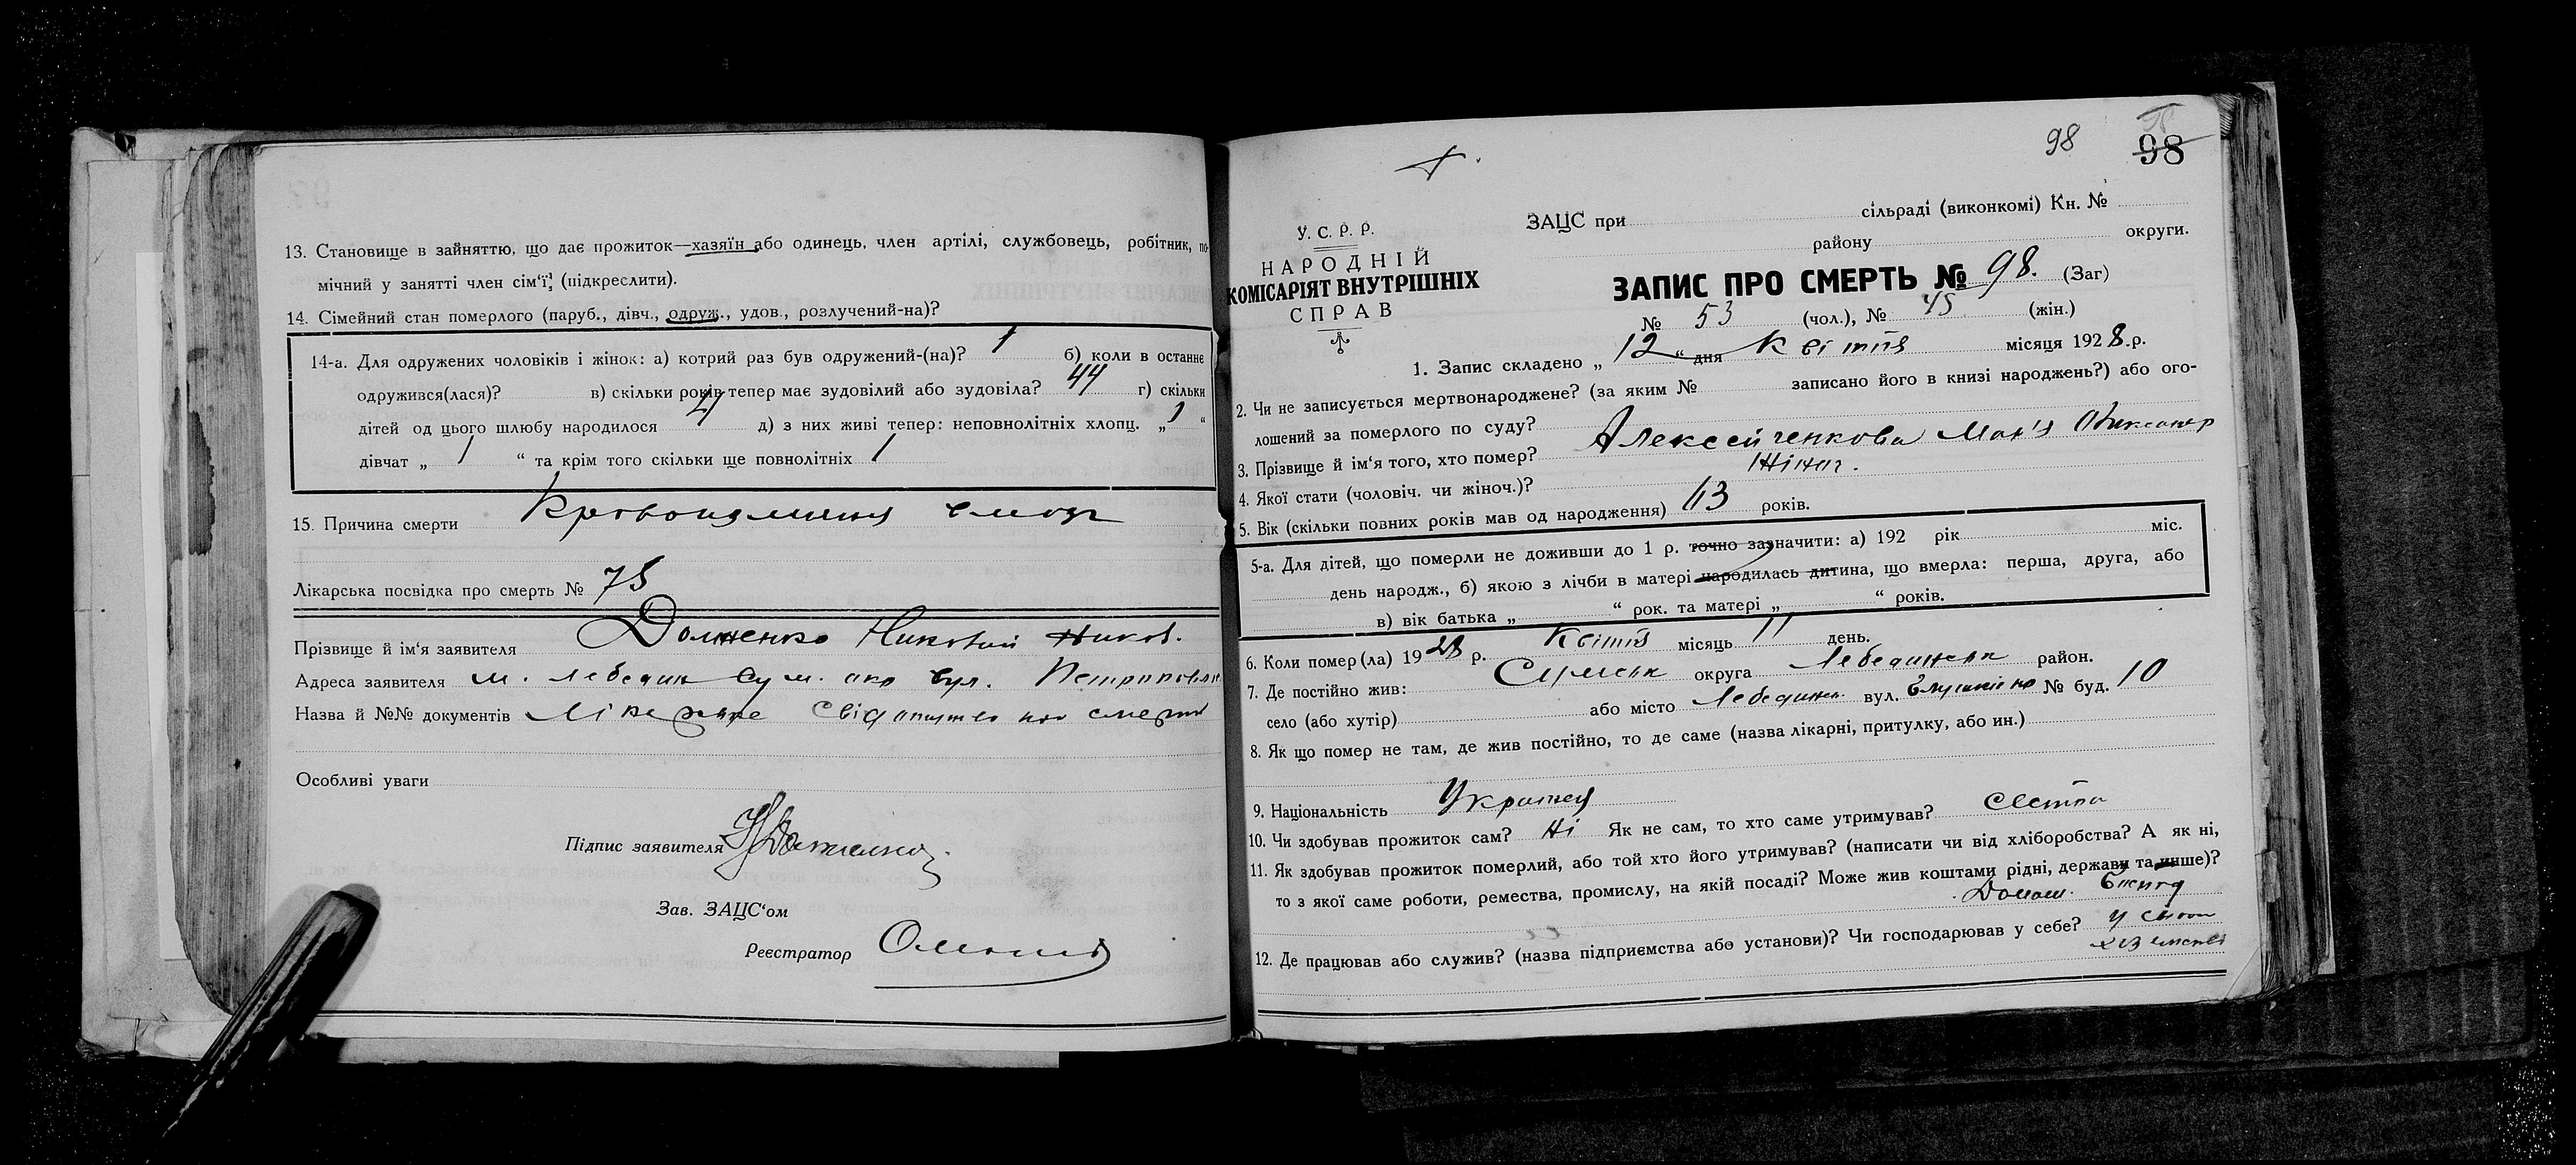 13. Становище в зайняттю, що дає прожиток—хазяїн або одинець, член артілі, службовець, робітник, по-
мічний у занятті член сім'ї; (підкреслити).
14. Сімейний стан померлого (паруб., дівч., одруж., удов., розлучений-на)?
14-а. Для одружених чоловіків і жінок: а) котрий раз був одружений-(на)? 1 б) коли в останнє
одружився(лася)? в) скільки років тепер має зудовілий або зудовіла? 44 г) скільки
дітей од цього шлюбу народилося 4 д) з них живі тепер: неповнолітніх хлопц. „ 1 “
дівчат „ 1 “ та крім того скільки ще повнолітніх 1
15. Причина смерти
Лікарська посвідка про смерть № 75
Прізвище й ім'я заявителя Долженко
Адреса заявителя м. Лебедин Сум. окр вул.
Назва й №№ документів Лікарське свідоцтво про смерть
Особливі уваги
Підпис заявителя
Зав. ЗАЦС'ом
Реєстратор
98 98
У. С. Р. Р.
НАРОДНІЙ
КОМІСАРІЯТ ВНУТРІШНІХ
СПРАВ
ЗАЦС при сільраді (виконкомі) Кн. №
району округи.
ЗАПИС ПРО СМЕРТЬ № 98. (Заг)
№ 53 (чол.), № 45 (жін.)
1. Запис складено „ 12 “ дня Квітня місяця 1928 р.
2. Чи не записується мертвонароджене? (за яким № записано його в книзі народжень?) або ого-
лошений за померлого по суду?
3. Прізвище й ім'я того, хто помер? Алексейченкова Мар'я
4. Якої стати (чоловіч. чи жіноч.)? Жіноч.
5. Вік (скільки повних років мав од народження) років.
5-а. Для дітей, що померли не доживши до 1 р. точно зазначити: а) 192 рік міс.
день народж., б) якою з лічби в матері народилась дитина, що вмерла: перша, друга, або
в) вік батька „ “ рок. та матері „ “ років.
6. Коли помер(ла) 1928 р. Квітня місяць 11 день.
7. Де постійно жив: Сумськ округа Лебединськ район.
село (або хутір) або місто Лебедин вул. № буд. 10
8. Як що помер не там, де жив постійно, то де саме (назва лікарні, притулку, або ин.)
9. Національність
10. Чи здобував прожиток сам? Ні Як не сам, то хто саме утримував?
11. Як здобував прожиток померлий, або той хто його утримував? (написати чи від хліборобства? А як ні,
то з якої саме роботи, ремества, промислу, на якій посаді? Може жив коштами рідні, держави та инше)?
Домаш.
12. Де працював або служив? (назва підприємства або установи)? Чи господарював у себе? у своєм